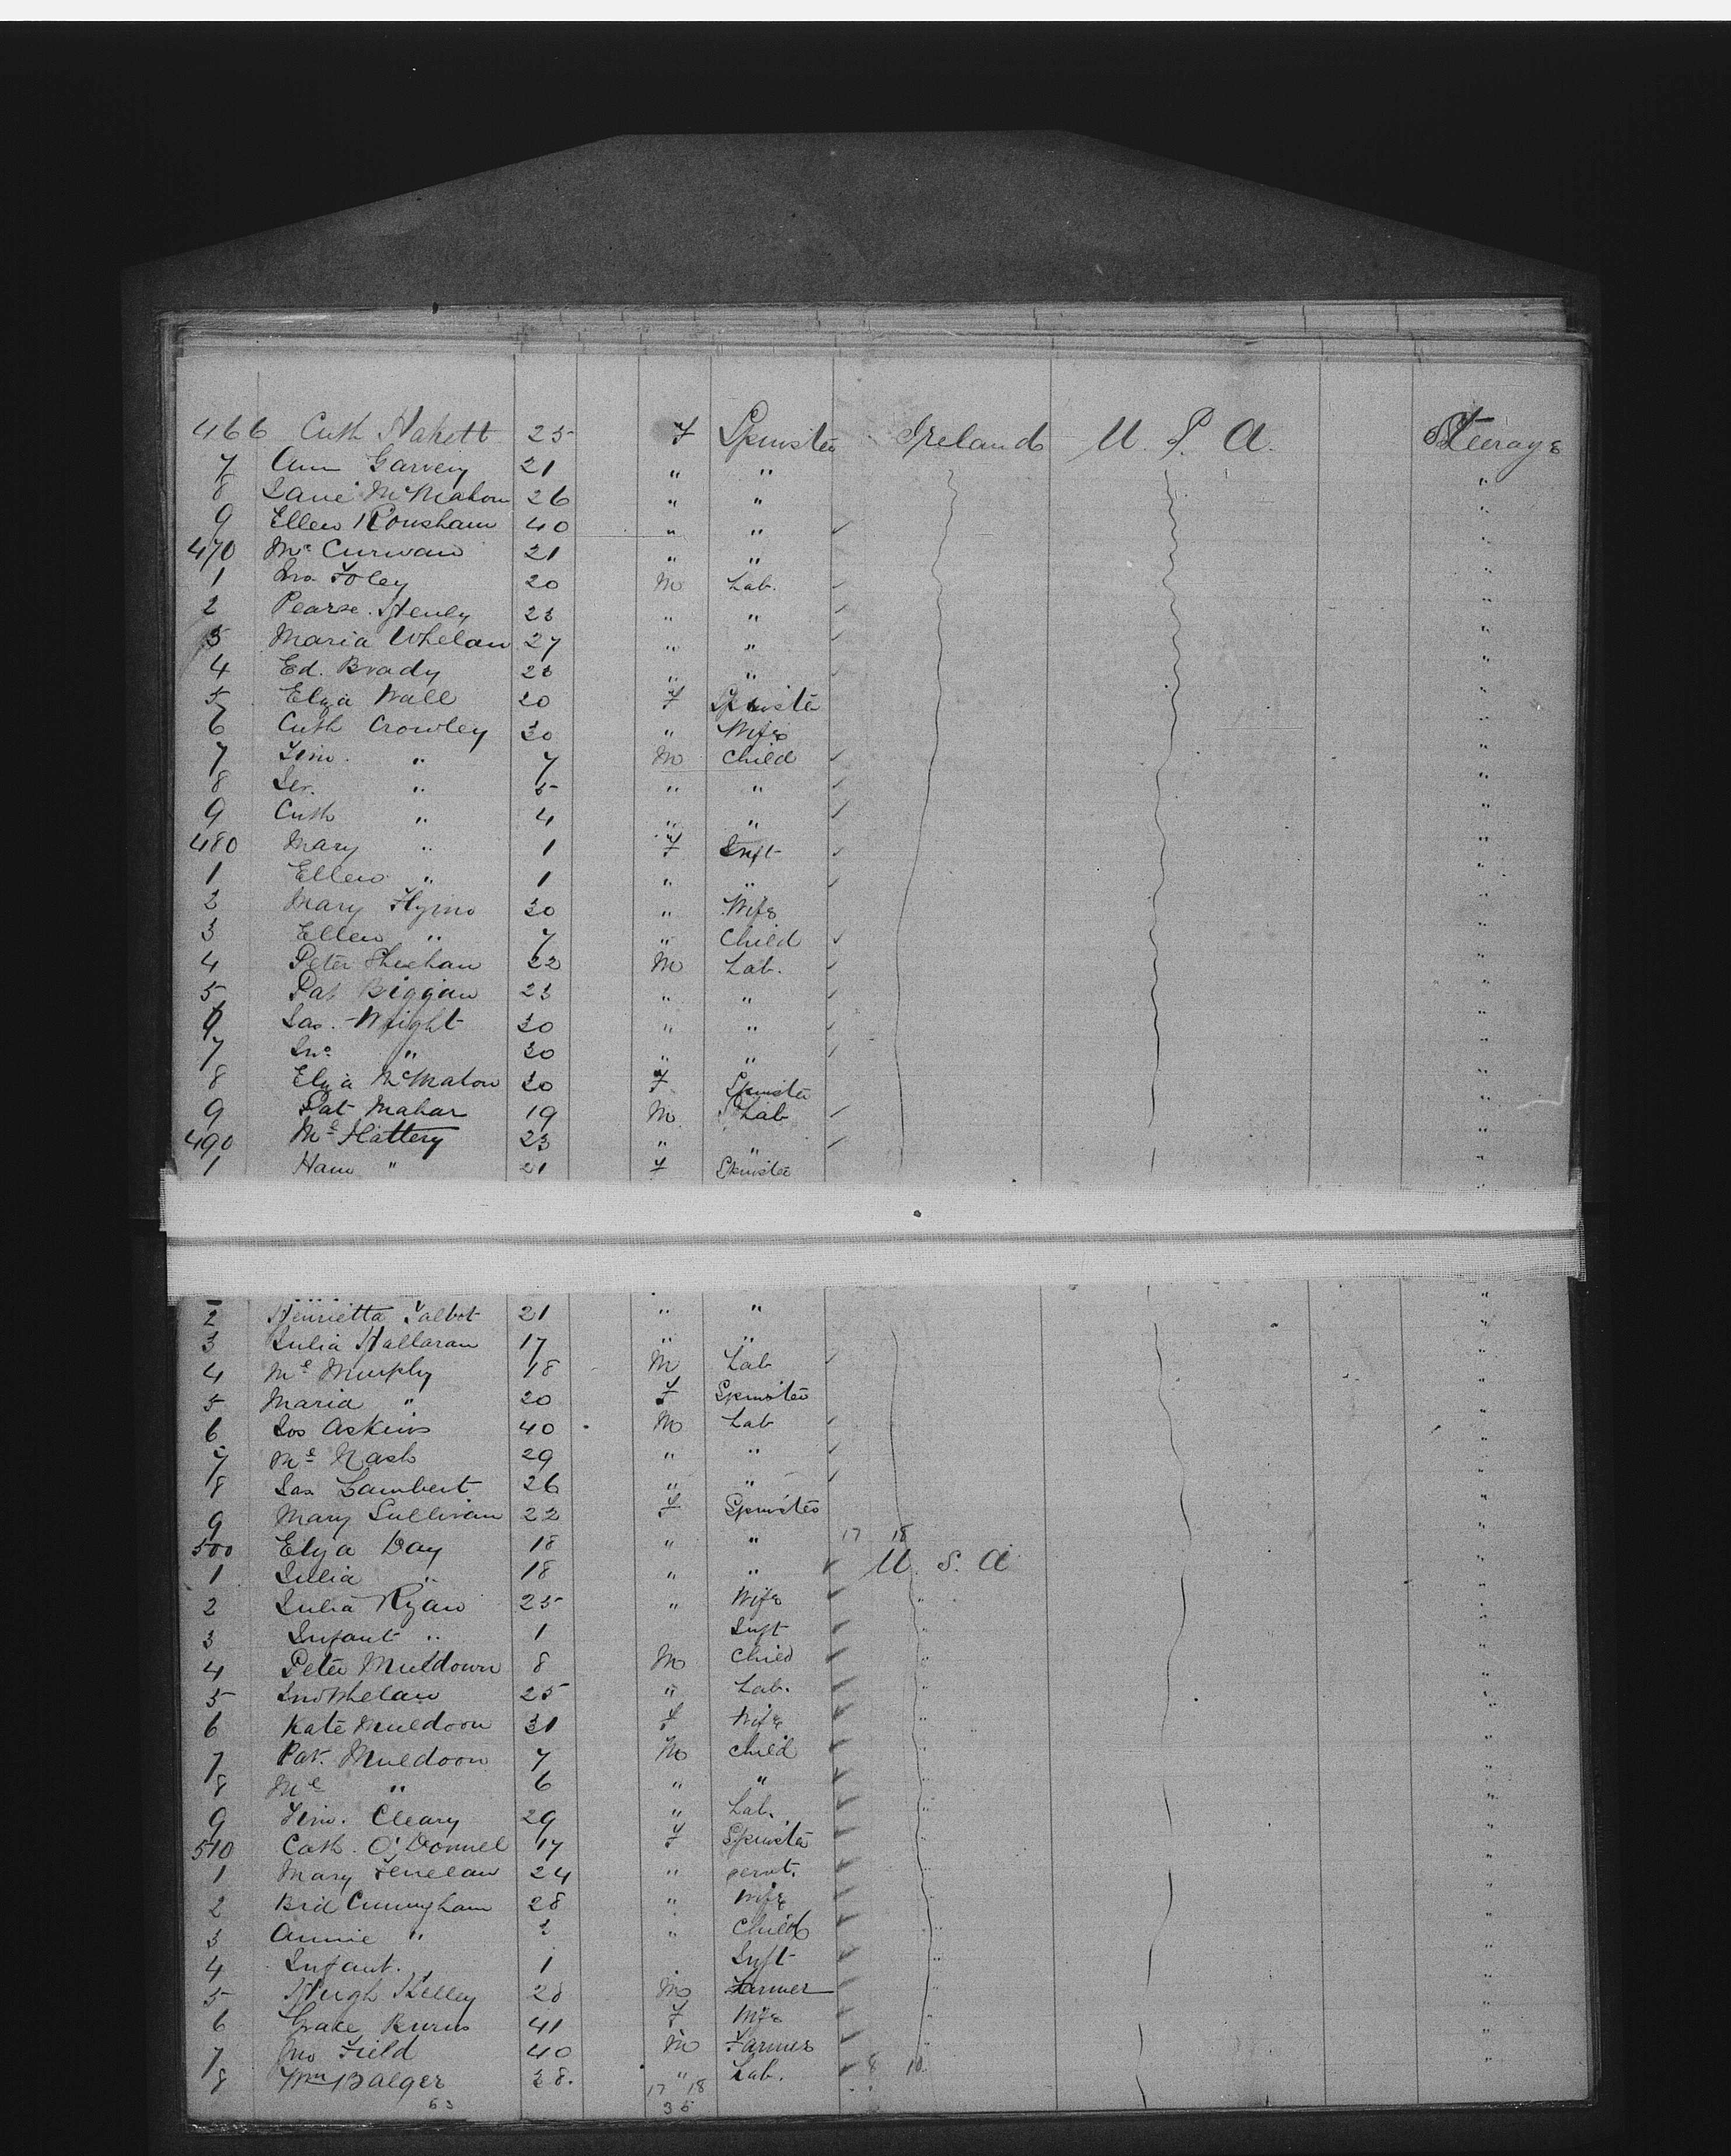 466 Cath Hakett 25 F Spinster Ireland U. S. A. Steerage
7 Ann Garvey 21 " " "
8 Jane McMahon 26 " " "
9 Ellen Ronsham 40 " " "
470 Mc Curwan 21 " " "
1 Jno Foley 20 M Lab. "
2 Pearse Henly 23 " " "
3 Maria Whelan 27 " " "
4 Ed. Brady 23 " " "
5 Eliza Wall 20 F Spinster "
6 Cath Crowley 30 " Wife "
7 Tim. " 7 M Child "
8 Jer. " 5 " " "
9 Cath " 4 " " "
480 Mary " 1 F Inft "
1 Ellen " 1 " " "
2 Mary Flynn 30 " Wife "
3 Ellen " 7 " Child "
4 Peter Sheehan 22 M Lab. "
5 Pat Biggan 23 " " "
6 Jas. Wright 30 " " "
7 Jno " 30 " " "
8 Eliza McMahon 20 F Spinster "
9 Pat Mahar 19 M Lab "
490 Ml Slattery 23 " " "
1 Han " 21 F Spinster "
2 Henrietta Talbot 21 " " "
3 Julia Hallaran 17 " " "
4 Ml Murphy 18 M Lab "
5 Maria " 20 F Spinster "
6 Jos Askins 40 M Lab "
7 Ml Nash 29 " " "
8 Jas Lambert 26 " " "
9 Mary Sullivan 22 F Spinster "
17 18
500 Eliza Day 18 " " U. S. A "
1 Julia " 18 " " "
2 Julia Ryan 25 " Wife " "
3 Infant " 1 Inft " "
4 Peter Muldown 8 M Child " "
5 Jno Whelan 25 " Lab. " "
6 Kate Muldoon 31 F Wife " "
7 Pat. Muldoon 7 M Child " "
8 Ml " 6 " " " "
9 Tim. Cleary 29 " Lab. " "
510 Cath. O'Donnel 17 F Spinster " "
1 Mary Fenelan 24 " servt. " "
2 Brid Cunningham 28 " Wife " "
3 Annie " 3 " Child " "
4 Infant. " 1 Inft " "
5 Hugh Kelley 28 M Farmer " "
6 Grace Burns 41 F Wife "
7 Jno Field 40 M Farmer "
8 Wm Balger 38. " Lab. 8 10
17 18
63 35